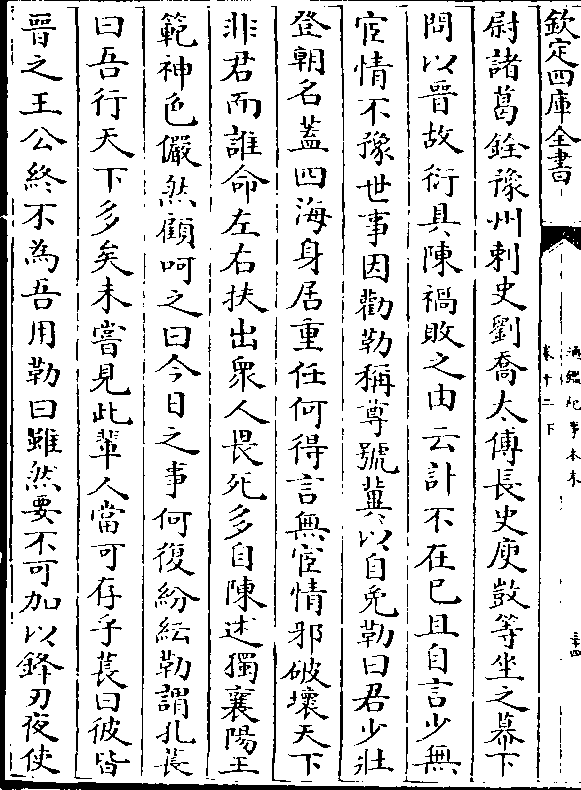 欽定四庫全書
通鑑紀事本末
卷十二下
三十四
尉諸葛銓豫州刺史劉喬太傅長史庾敳等坐之幕下
問以晉故衍具陳禍敗之由云計不在己且自言少無
宦情不豫世事因勸勒稱尊號冀以自免勒曰君少壯
登朝名蓋四海身居重任何得言無宦情邪破壞天下
非君而誰命左右扶出衆人畏死多自陳述獨襄陽王
範神色儼然顧呵之曰今日之事何復紛紜勒謂孔萇
曰吾行天下多矣未嘗見此輩人當可存乎萇曰彼皆
晉之王公終不為吾用勒曰雖然要不可加以鋒刃夜使